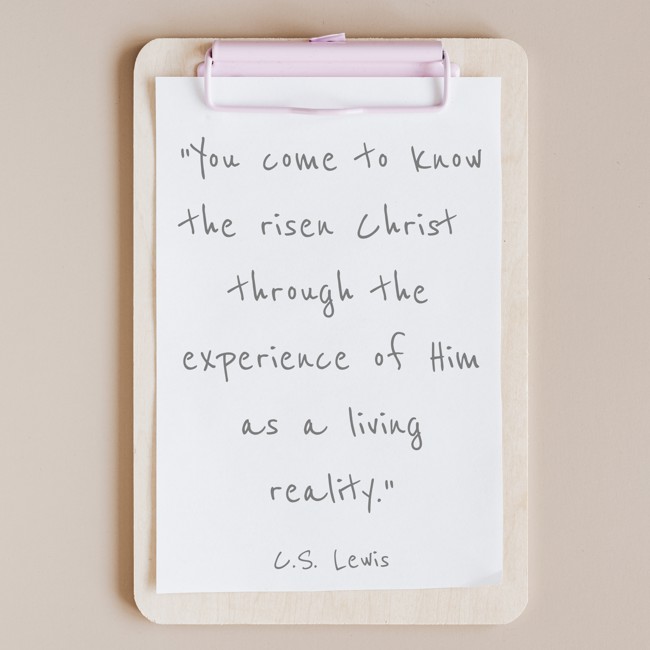 "You come to know
the risen Christ
through the
experience of Him
as a living
reality."
C.S. Lewis